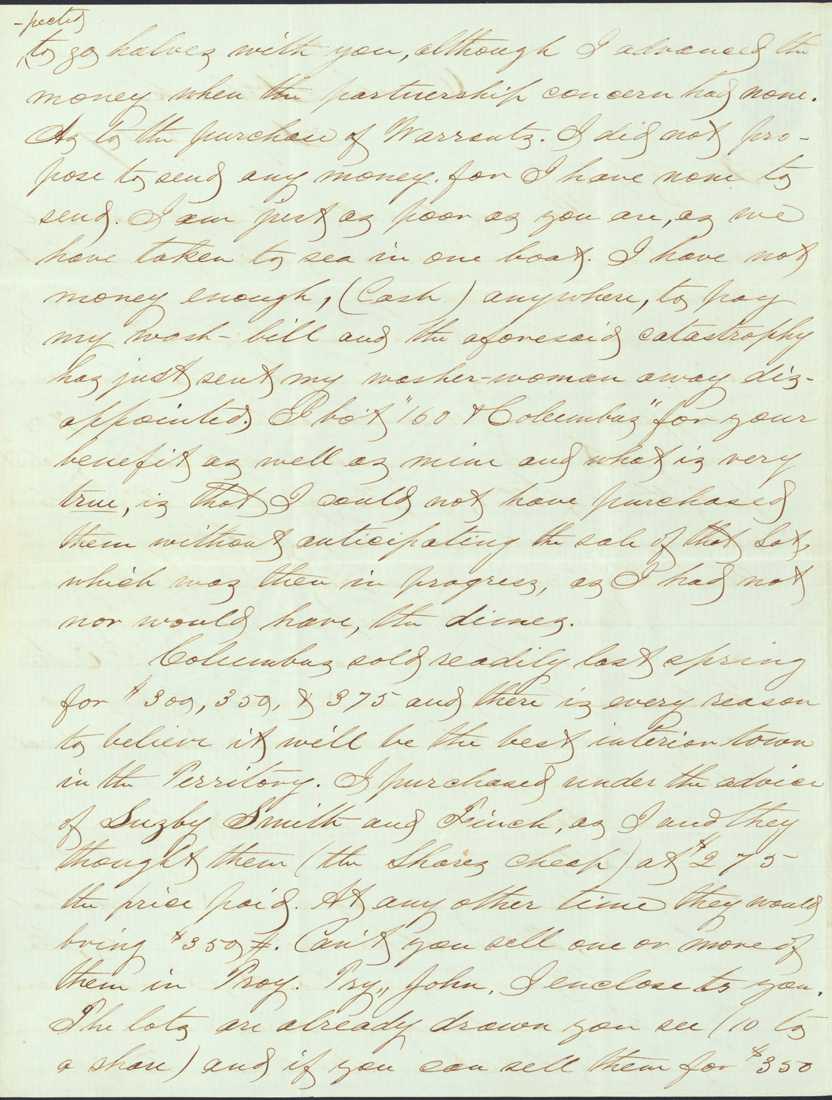 -pected
to go halves with you, although I advanced the
money when the partnership concern had none.
As to the purchase of Warrants. I did not pro-
pose to send any money. for I have none to
send. I am just as poor as you are, as we
have taken to sea in one boat. I have not
money enough, (Cash) anywhere, to pay
my wash-bill and the aforesaid catastrophy
has just sent my washer-woman away dis-
appointed. I bo't "160 & Columbus" for your
benefit as well as mine and what is very
true, is that I could not have purchased
them without anticipating the sale of that Lot,
which was then in progress, as I had not
nor would have, the dimes.
Columbus sold readily last spring
for $300, 350, & 375 and there is every reason
to believe it will be the best interior town
in the Territory. I purchased under the advice
of Smith and Finch, as I and they
thought them (the Shares cheap) at $275
the price paid. At any other time they would
bring $350. Can't you sell one or more of
them in Troy. Try, John, I enclose to you.
The lots are already drawn you see (10 to
a share) and if you can sell them for $350